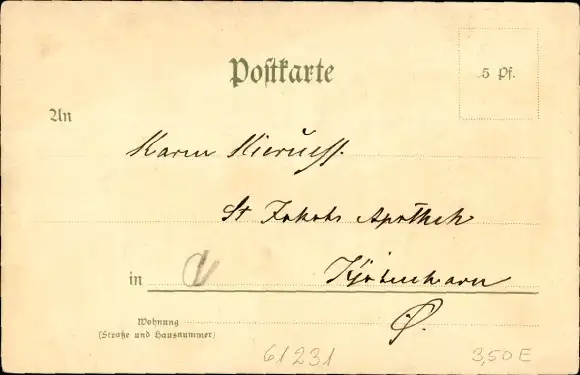 Postkarte
5 Pf.
An
Karen Kierulff.
St Jakobs Apothek
in Kjøbenhavn
Ø.
Wohnung
(Straße und Hausnummer)
61231 3,50 E